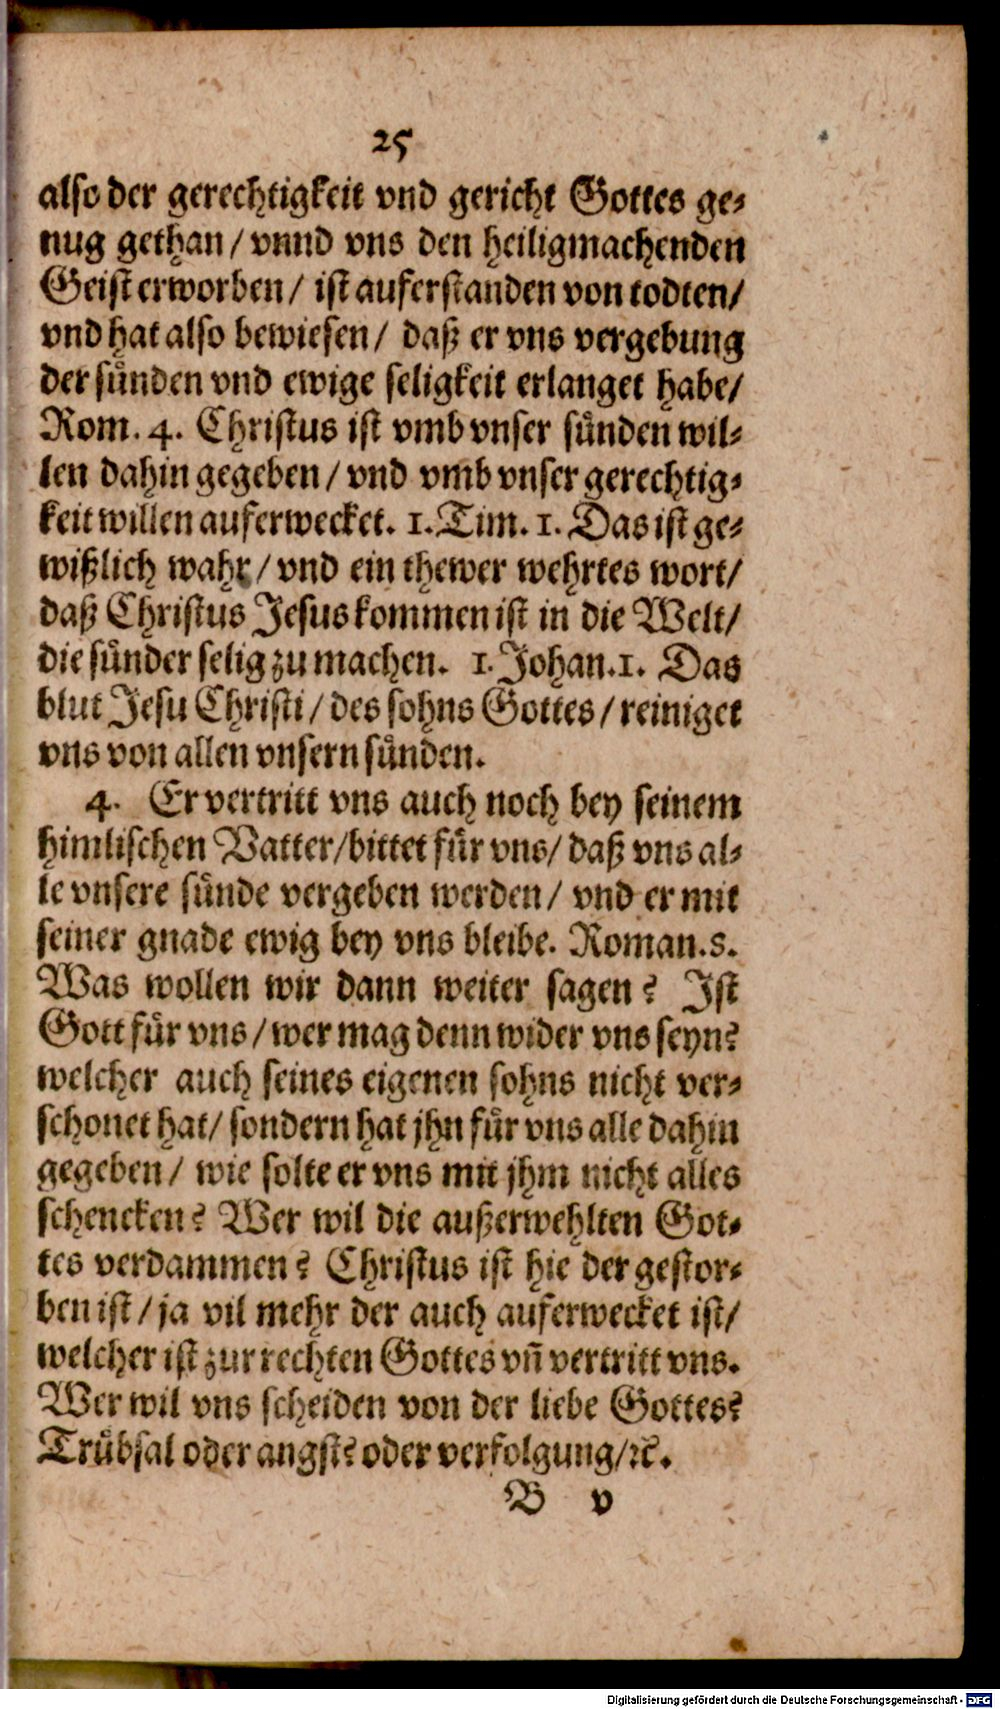 25
also der gerechtigkeit vnd gericht Gottes ge-
nug gethan / vnnd vns den heiligmachenden
Geist erworben / ist auferstanden von todten /
vnd hat also bewiesen / daß er vns vergebung
der sünden vnd ewige seligkeit erlanget habe /
Rom. 4. Christus ist vmb vnser sünden wil-
len dahin gegeben / vnd vmb vnser gerechtig-
keit willen auferwecket. 1. Tim. 1. Das ist ge-
wißlich wahr / vnd ein thewer wehrtes wort /
daß Christus Jesus kommen ist in die Welt /
die sünder selig zu machen. 1. Johan. 1. Das
blut Jesu Christi / des sohns Gottes / reiniget
vns von allen vnsern sünden.
4. Er vertritt vns auch noch bey seinem
himlischen Vatter / bittet für vns / daß vns al-
le vnsere sünde vergeben werden / vnd er mit
seiner gnade ewig bey vns bleibe. Roman. 8.
Was wollen wir dann weiter sagen? Ist
Gott für vns / wer mag denn wider vns seyn?
welcher auch seines eigenen sohns nicht ver-
schonet hat / sondern hat jhn für vns alle dahin
gegeben / wie solte er vns mit jhm nicht alles
schencken? Wer wil die außerwehlten Got-
tes verdammen? Christus ist hie der gestor-
ben ist / ja vil mehr der auch auferwecket ist /
welcher ist zur rechten Gottes vñ vertritt vns.
Wer wil vns scheiden von der liebe Gottes?
Trübsal oder angst? oder verfolgung / ꝛc.
B v
Digitalisierung gefördert durch die Deutsche Forschungsgemeinschaft - DFG